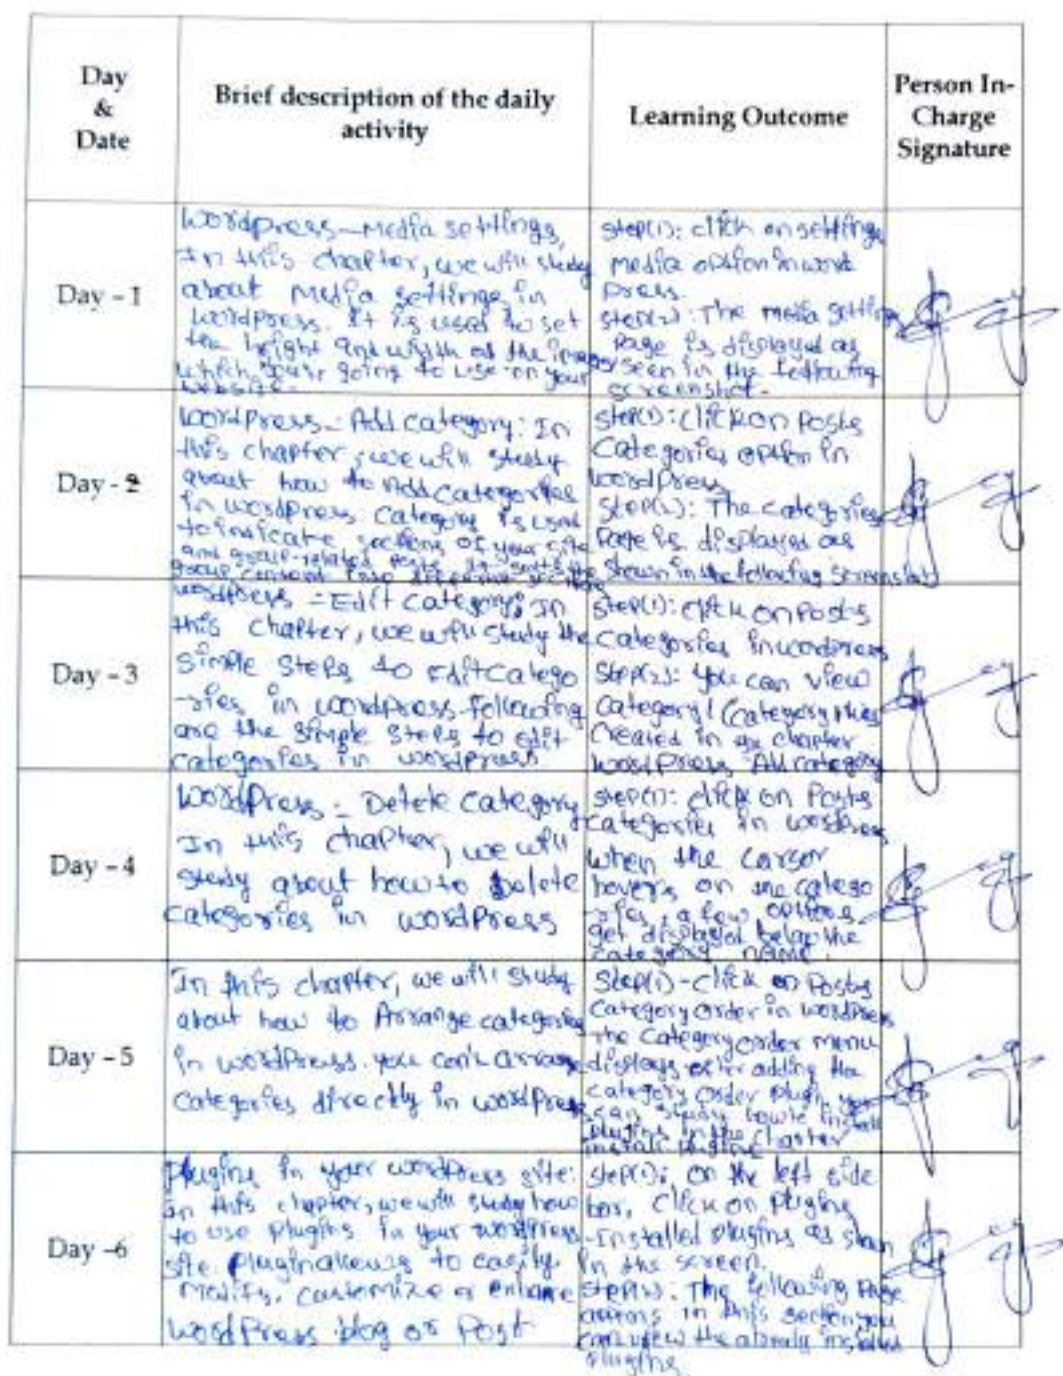 Day
&
Date
Brief description of the daily
activity
Learning Outcome
Person In-
Charge
Signature
Day - 1
WordPress - Media settings,
In this chapter, we will study
about Media settings in
WordPress. It is used to set
the height and width of the images
which you're going to use on your
website.
Step(1): click on settings
Media option in word
press.
Step(2): The media setting
page is displayed as
seen in the following
screenshot.
Day - 2
WordPress - Add category: In
this chapter, we will study
about how to Add categories
in wordpress category is used
to indicate sections of your site
and group-related posts. It sorts the
group content into different sections
Step(1): Click on Posts
Categories option in
wordpress
Step(2): The categories
Page is displayed as
shown in the following screenshot
Day - 3
wordpress - Edit category: In
this chapter, we will study the
simple steps to edit catego
-ries in wordpress following
are the simple steps to edit
categories in wordpress
Step(1): click on Posts
categories in wordpress
Step(2): you can view
category1 (category1 was
created in the chapter
wordPress Add category
Day - 4
WordPress - Delete category
In this chapter, we will
study about how to Delete
categories in wordPress
step(1): click on Posts
categories in wordpress
when the cursor
hovers on the catego
-ries, a few options
get displayed below the
category name.
Day - 5
In this chapter, we will study
about how to Arrange categories
in wordPress. you can't arrange
categories directly in wordpress
Step(1) - click on Posts
Category order in wordPress
The Category order menu
displays after adding the
category order plugin. you
can study how to install
plugins in the chapter
install plugins
Day -6
Plugins in your wordpress site:
in this chapter, we will study how
to use plugins in your wordpress
site. plugin allows to easily
modify, customize or enhance
WordPress blog or Post
Step(1): on the left side
bar, click on plugins
-Installed plugins as shown
in the screen.
Step(2): The following page
in this section you
can view the already installed
plugins